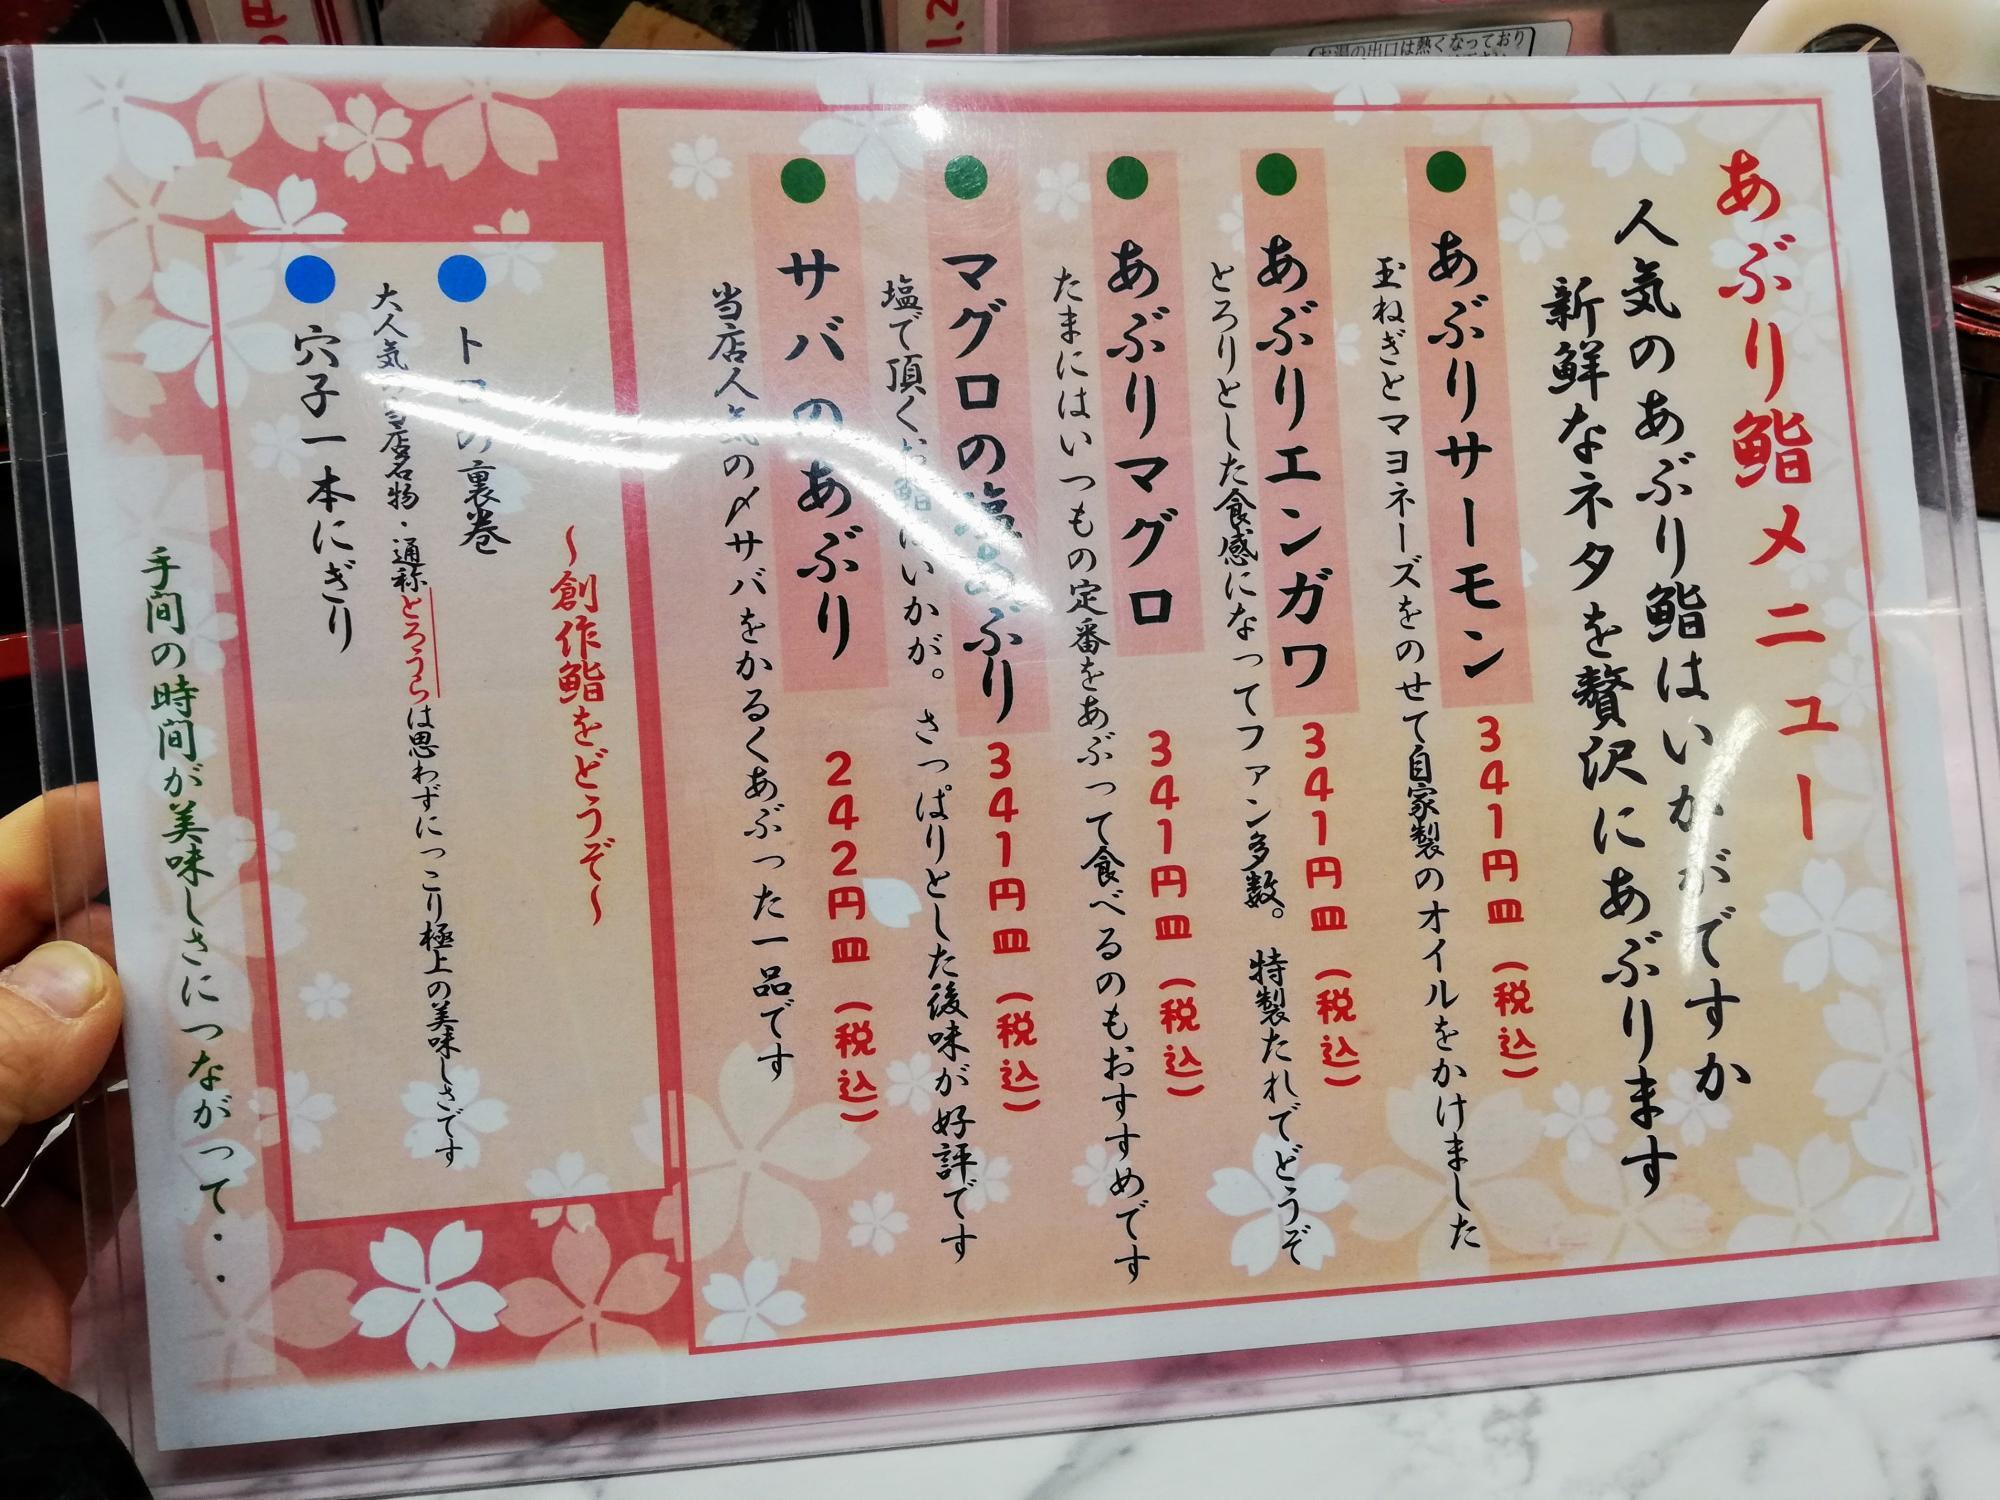 あぶり鮨メニュー
人気のあぶり鮨はいかがですか
新鮮なネタを贅沢にあぶります
● あぶりサーモン 341円皿(税込)
玉ねぎとマヨネーズをのせて自家製のオイルをかけました
● あぶりエンガワ 341円皿(税込)
とろりとした食感になってファン多数。 特製たれでどうぞ
● あぶりマグロ 341円皿(税込)
たまにはいつもの定番をあぶって食べるのもおすすめです
● マグロの塩あぶり 341円皿(税込)
塩で頂くお鮨はいかが。 さっぱりとした後味が好評です
● サバのあぶり 242円皿(税込)
当店人気の〆サバをかるくあぶった一品です
~創作鮨をどうぞ~
● トロの裏巻
大人気の当店名物・通称とろうらは思わずにっこり極上の美味しさです
● 穴子一本にぎり
手間の時間が美味しさにつながって・・
お湯の出口は熱くなっており